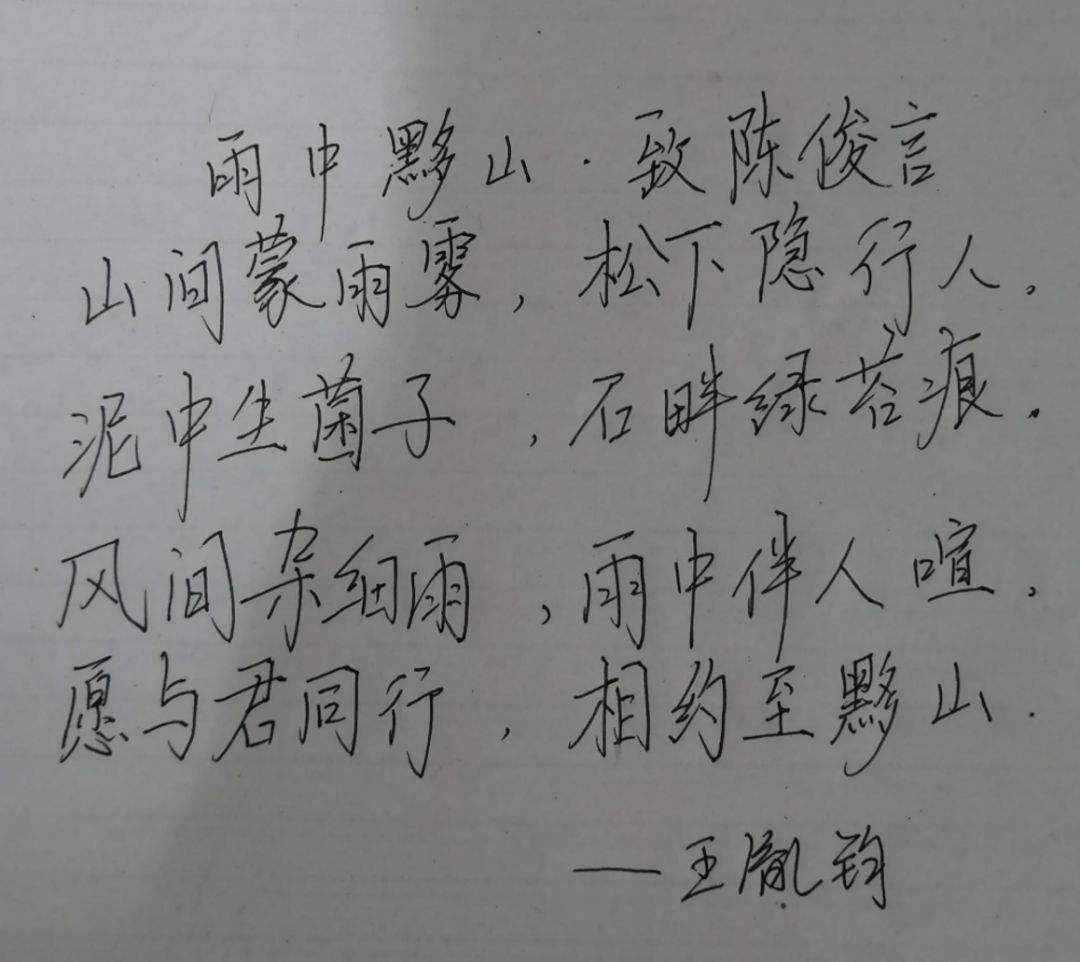 雨中黟山·致陈俊言
山间蒙雨雾，松下隐行人。
泥中生菌子，石畔绿苔痕。
风间杂细雨，雨中伴人喧。
愿与君同行，相约至黟山.
——王胤钧